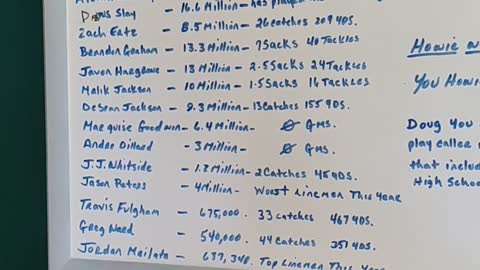 Slay - 16.6 Million - has played
Zach Eatz - 8.5 Million - 26 catches 209 YDS.
Brandon Graham - 13.3 Million - 7 Sacks 40 Tackles
Javon Hargrove - 13 Million - 2.5 Sacks 24 Tackles
Malik Jackson - 10 Million - 1.5 Sacks 16 Tackles
DeSean Jackson - 9.3 Million - 13 Catches 155 YDS.
Marquise Goodwin - 6.4 Million - Ø GMS.
Andre Dillard - 3 Million - Ø GMS.
J.J. Whitside - 1.2 Million - 2 Catches 45 YDS.
Jason Peters - 4 Million - Worst Linemen This Year
Travis Fulgham - 675,000. 33 catches 467 YDS.
Greg Ward - 540,000. 44 catches 351 YDS.
Jordan Mailata - 637,348. Top Linemen This Year
Howie
YOU Howi
Doug You
play caller
that includ
High School